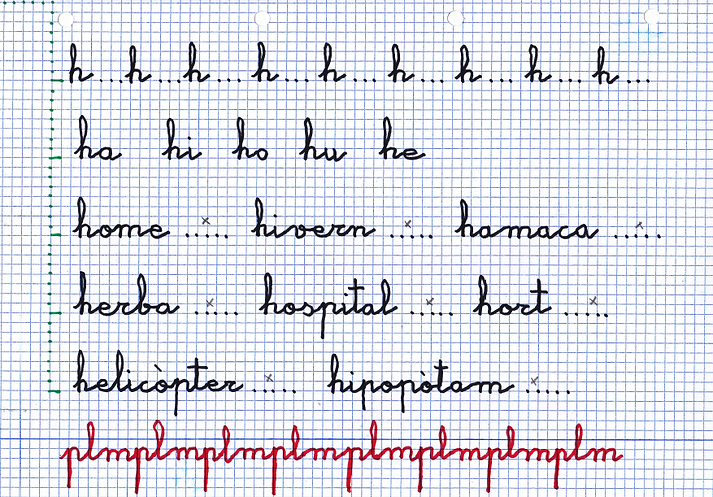 h...h...h...h...h...h...h...h...h...
ha hi ho hu he
home ..... hivern ..... hamaca .....
herba ..... hospital ..... hort .....
helicòpter ..... hipopòtam .....
plmplmplmplmplmplmplmplm